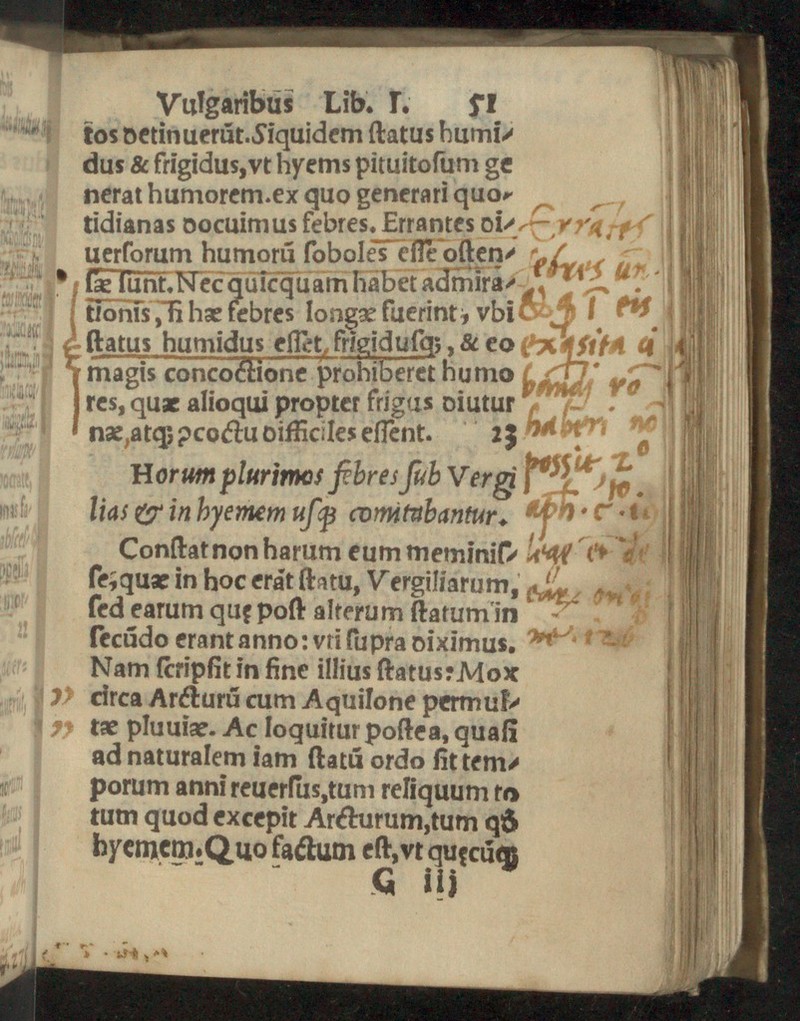 Vulgaribus Lib. I. 51
tos detinuerũt. Siquidem ſtatus humi⸗
dus & frigidus, vt hyems pituitoſum ge
nerat humorem. ex quo generari quo⸗
tidianas docuimus febres. Errantes di⸗
uerſorum humorũ ſoboles eſſe oſten⸗
ſæ ſunt. Nec quicquam habet admira⸗
tionis, ſi hæ febres longæ fuerint, vbi
ſtatus humidus eſſet, frigiduſq;, & eo
magis concoctione prohiberet humo
res, quæ alioqui propter frigus diutur
næ, atq; ↄcoctu difficiles eſſent. 23
Horum plurimos febres ſub Vergi
lias & in hyemem uſq; comitabantur.
Conſtat non harum eum meminiſ⸗
ſe; quæ in hoc erãt ſtatu, Vergiliarum,
ſed earum quę poſt alterum ſtatum in
ſecũdo erant anno: vti ſupra diximus.
Nam ſcripſit in fine illius ſtatus: Mox
circa Arcturũ cum Aquilone permul⸗
tæ pluuiæ. Ac loquitur poſtea, quaſi
ad naturalem iam ſtatũ ordo fit tem⸗
porum anni reuerſus, tum reliquum to
tum quod excepit Arcturum, tum qđ
hyemem. Quo factum eſt, vt quęcũq;
G iij